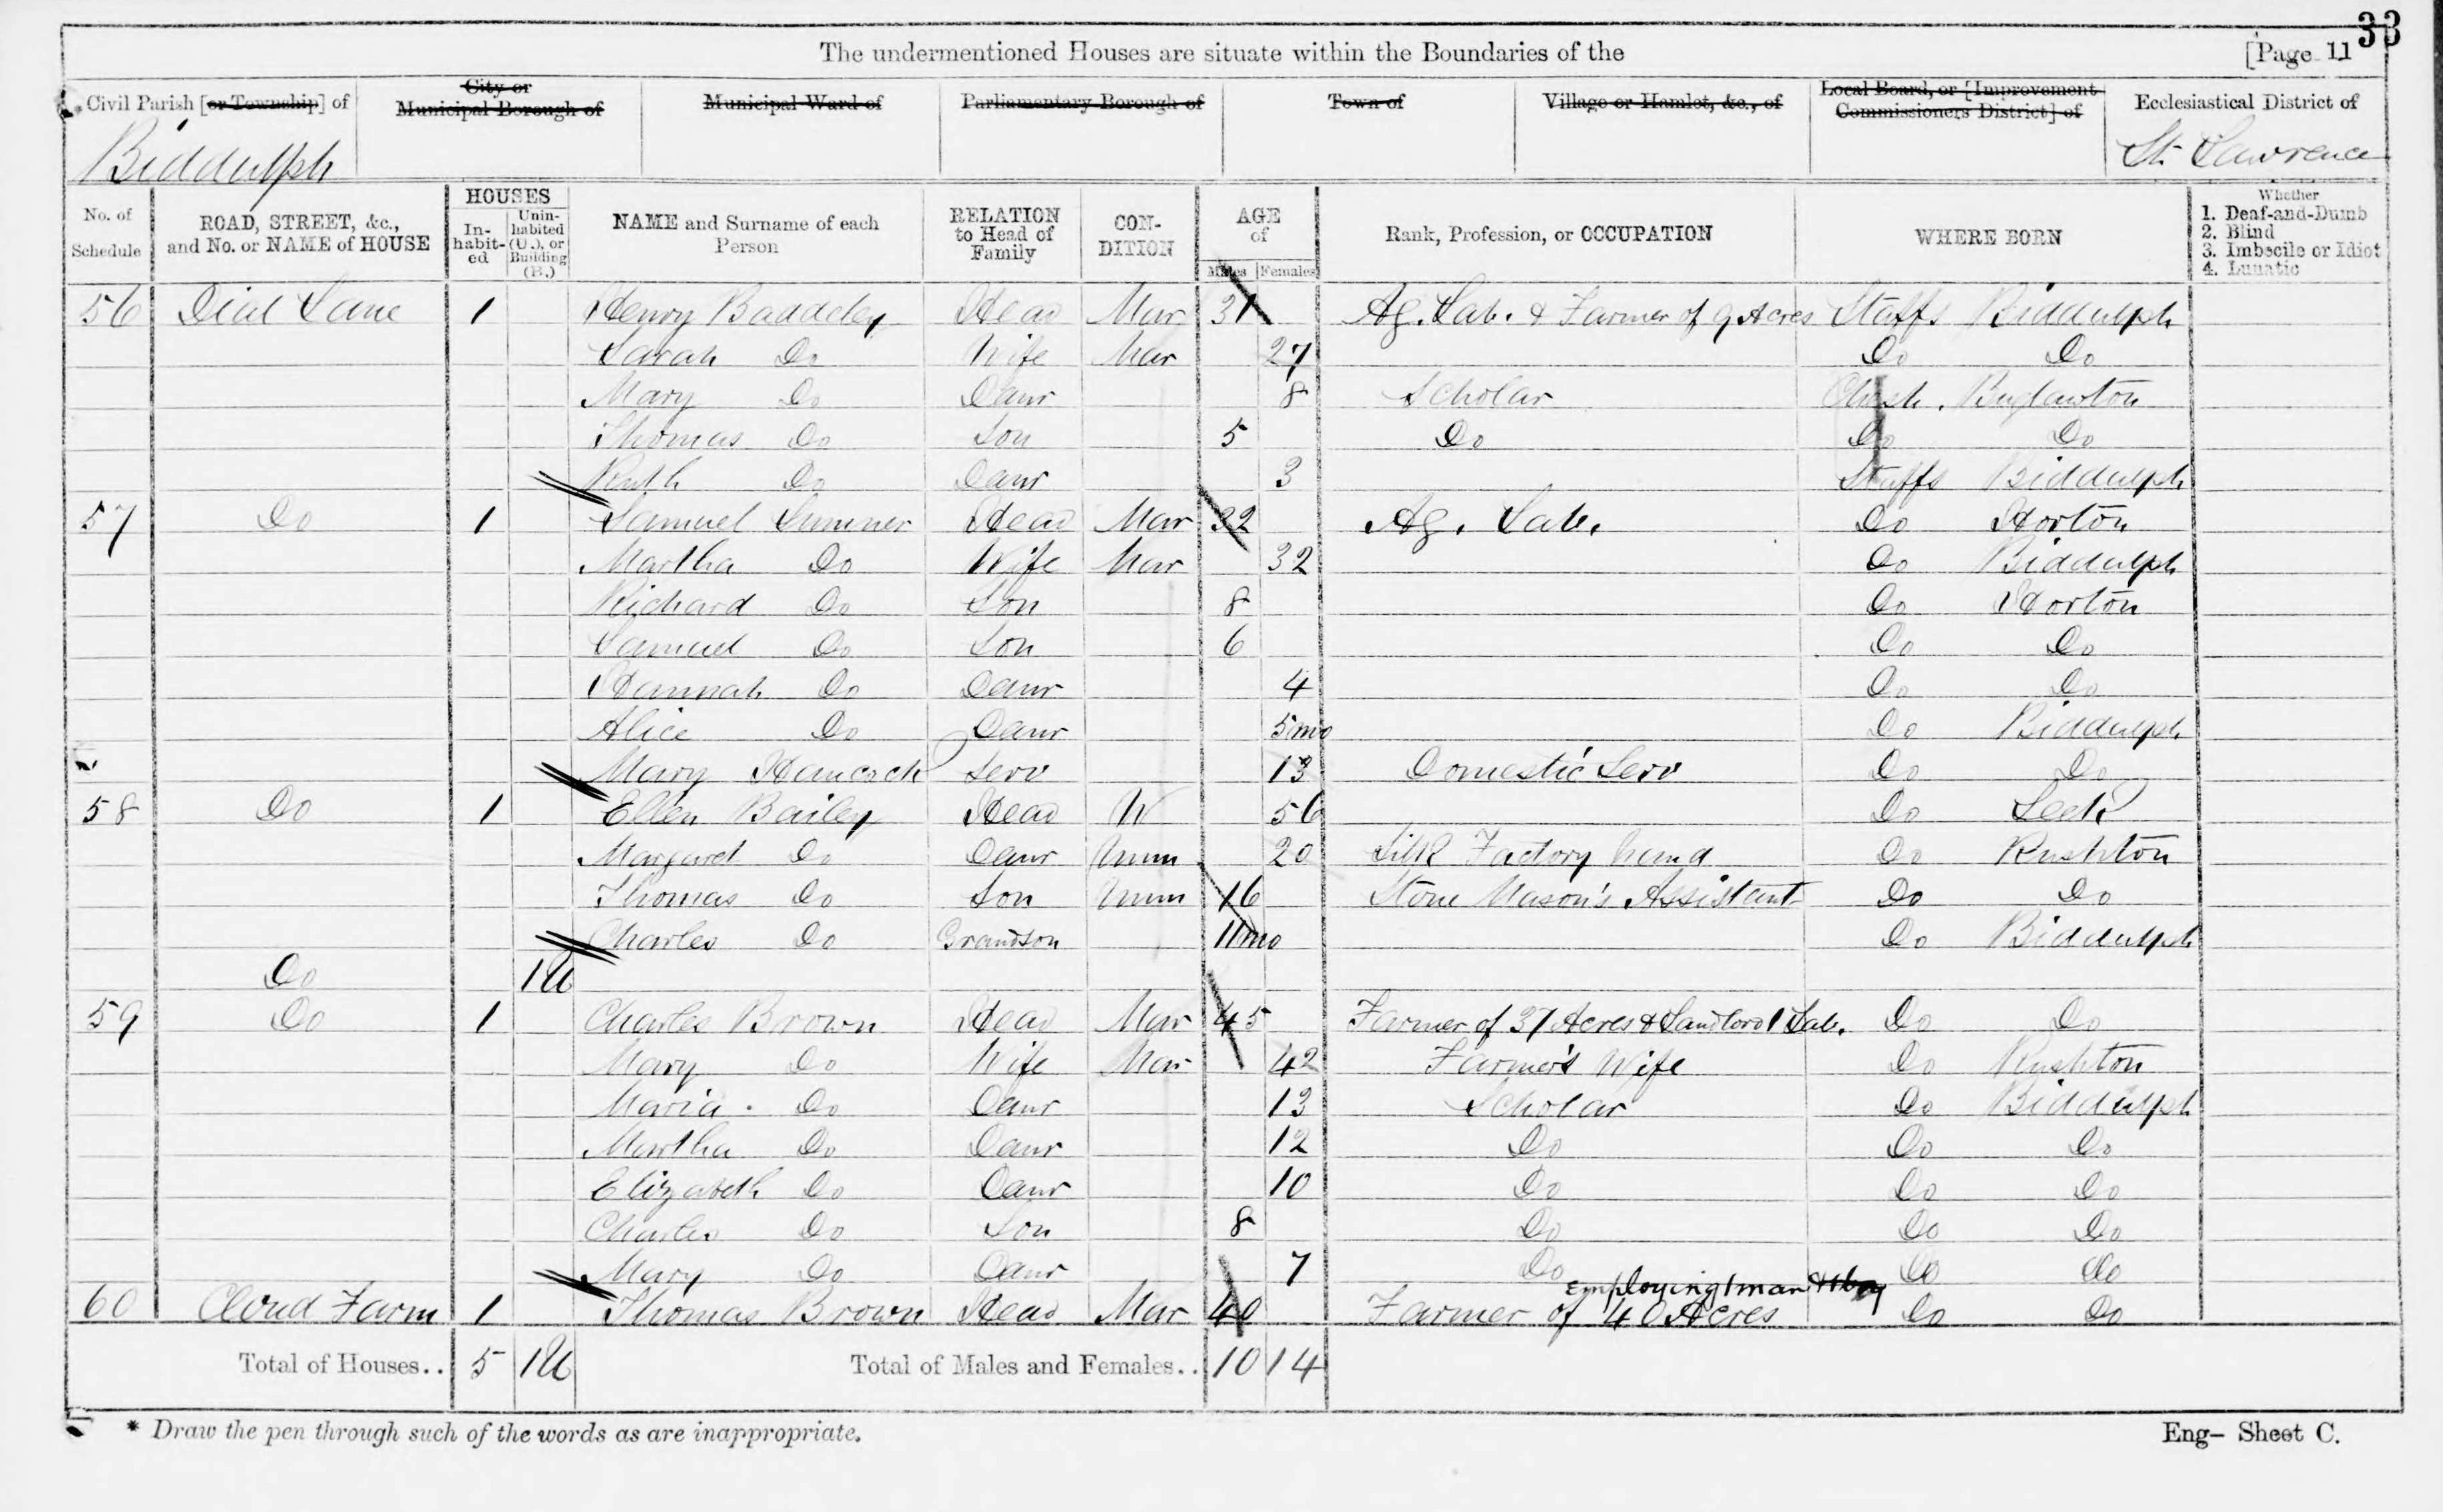 33
The undermentioned Houses are situate within the Boundaries of the [Page 11
Civil Parish [or Township] of City or Municipal Borough of Municipal Ward of Parliamentary Borough of Town of Village or Hamlet, &c., of Local Board, or [Improvement Commissioners District] of Ecclesiastical District of
Biddulph St. Lawrence
No. of Schedule ROAD, STREET, &c., and No. or NAME of HOUSE HOUSES In-habit-ed Unin-habited (U.), or Building (B.) NAME and Surname of each Person RELATION to Head of Family CON-DITION AGE of Males Females Rank, Profession, or OCCUPATION WHERE BORN Whether 1. Deaf-and-Dumb 2. Blind 3. Imbecile or Idiot 4. Lunatic
56 Dial Lane 1 Henry Baddeley Head Mar 31 Ag. Lab. & Farmer of 9 Acres Staffs Biddulph
Sarah Do Wife Mar 27 Do Do
Mary Do Daur 8 Scholar Chesh. Buglawton
Thomas Do Son 5 Do Do Do
Ruth Do Daur 3 Staffs Biddulph
57 Do 1 Samuel Sumner Head Mar 32 Ag. Lab. Do Horton
Martha Do Wife Mar 32 Do Biddulph
Richard Do Son 8 Do Horton
Samuel Do Son 6 Do Do
Hannah Do Daur 4 Do Do
Alice Do Daur 5mo Do Biddulph
Mary Hancock Serv 13 Domestic Serv Do Do
58 Do 1 Ellen Bailey Head W 56 Do Leek
Margaret Do Daur Unm 20 Silk Factory hand Do Rushton
Thomas Do Son Unm 16 Stone Mason's Assistant Do Do
Charles Do Grandson 11mo Do Biddulph
Do 1U
59 Do 1 Charles Brown Head Mar 45 Farmer of 37 Acres & Landlord 1 Lab. Do Do
Mary Do Wife Mar 42 Farmer's Wife Do Rushton
Maria Do Daur 13 Scholar Do Biddulph
Martha Do Daur 12 Do Do Do
Elizabeth Do Daur 10 Do Do Do
Charles Do Son 8 Do Do Do
Mary Do Daur 7 Do Do Do
employing 1 man & 1 boy
60 Cloud Farm 1 Thomas Brown Head Mar 40 Farmer of 40 Acres Do Do
Total of Houses.. 5 1U Total of Males and Females.. 10 14
* Draw the pen through such of the words as are inappropriate. Eng- Sheet C.